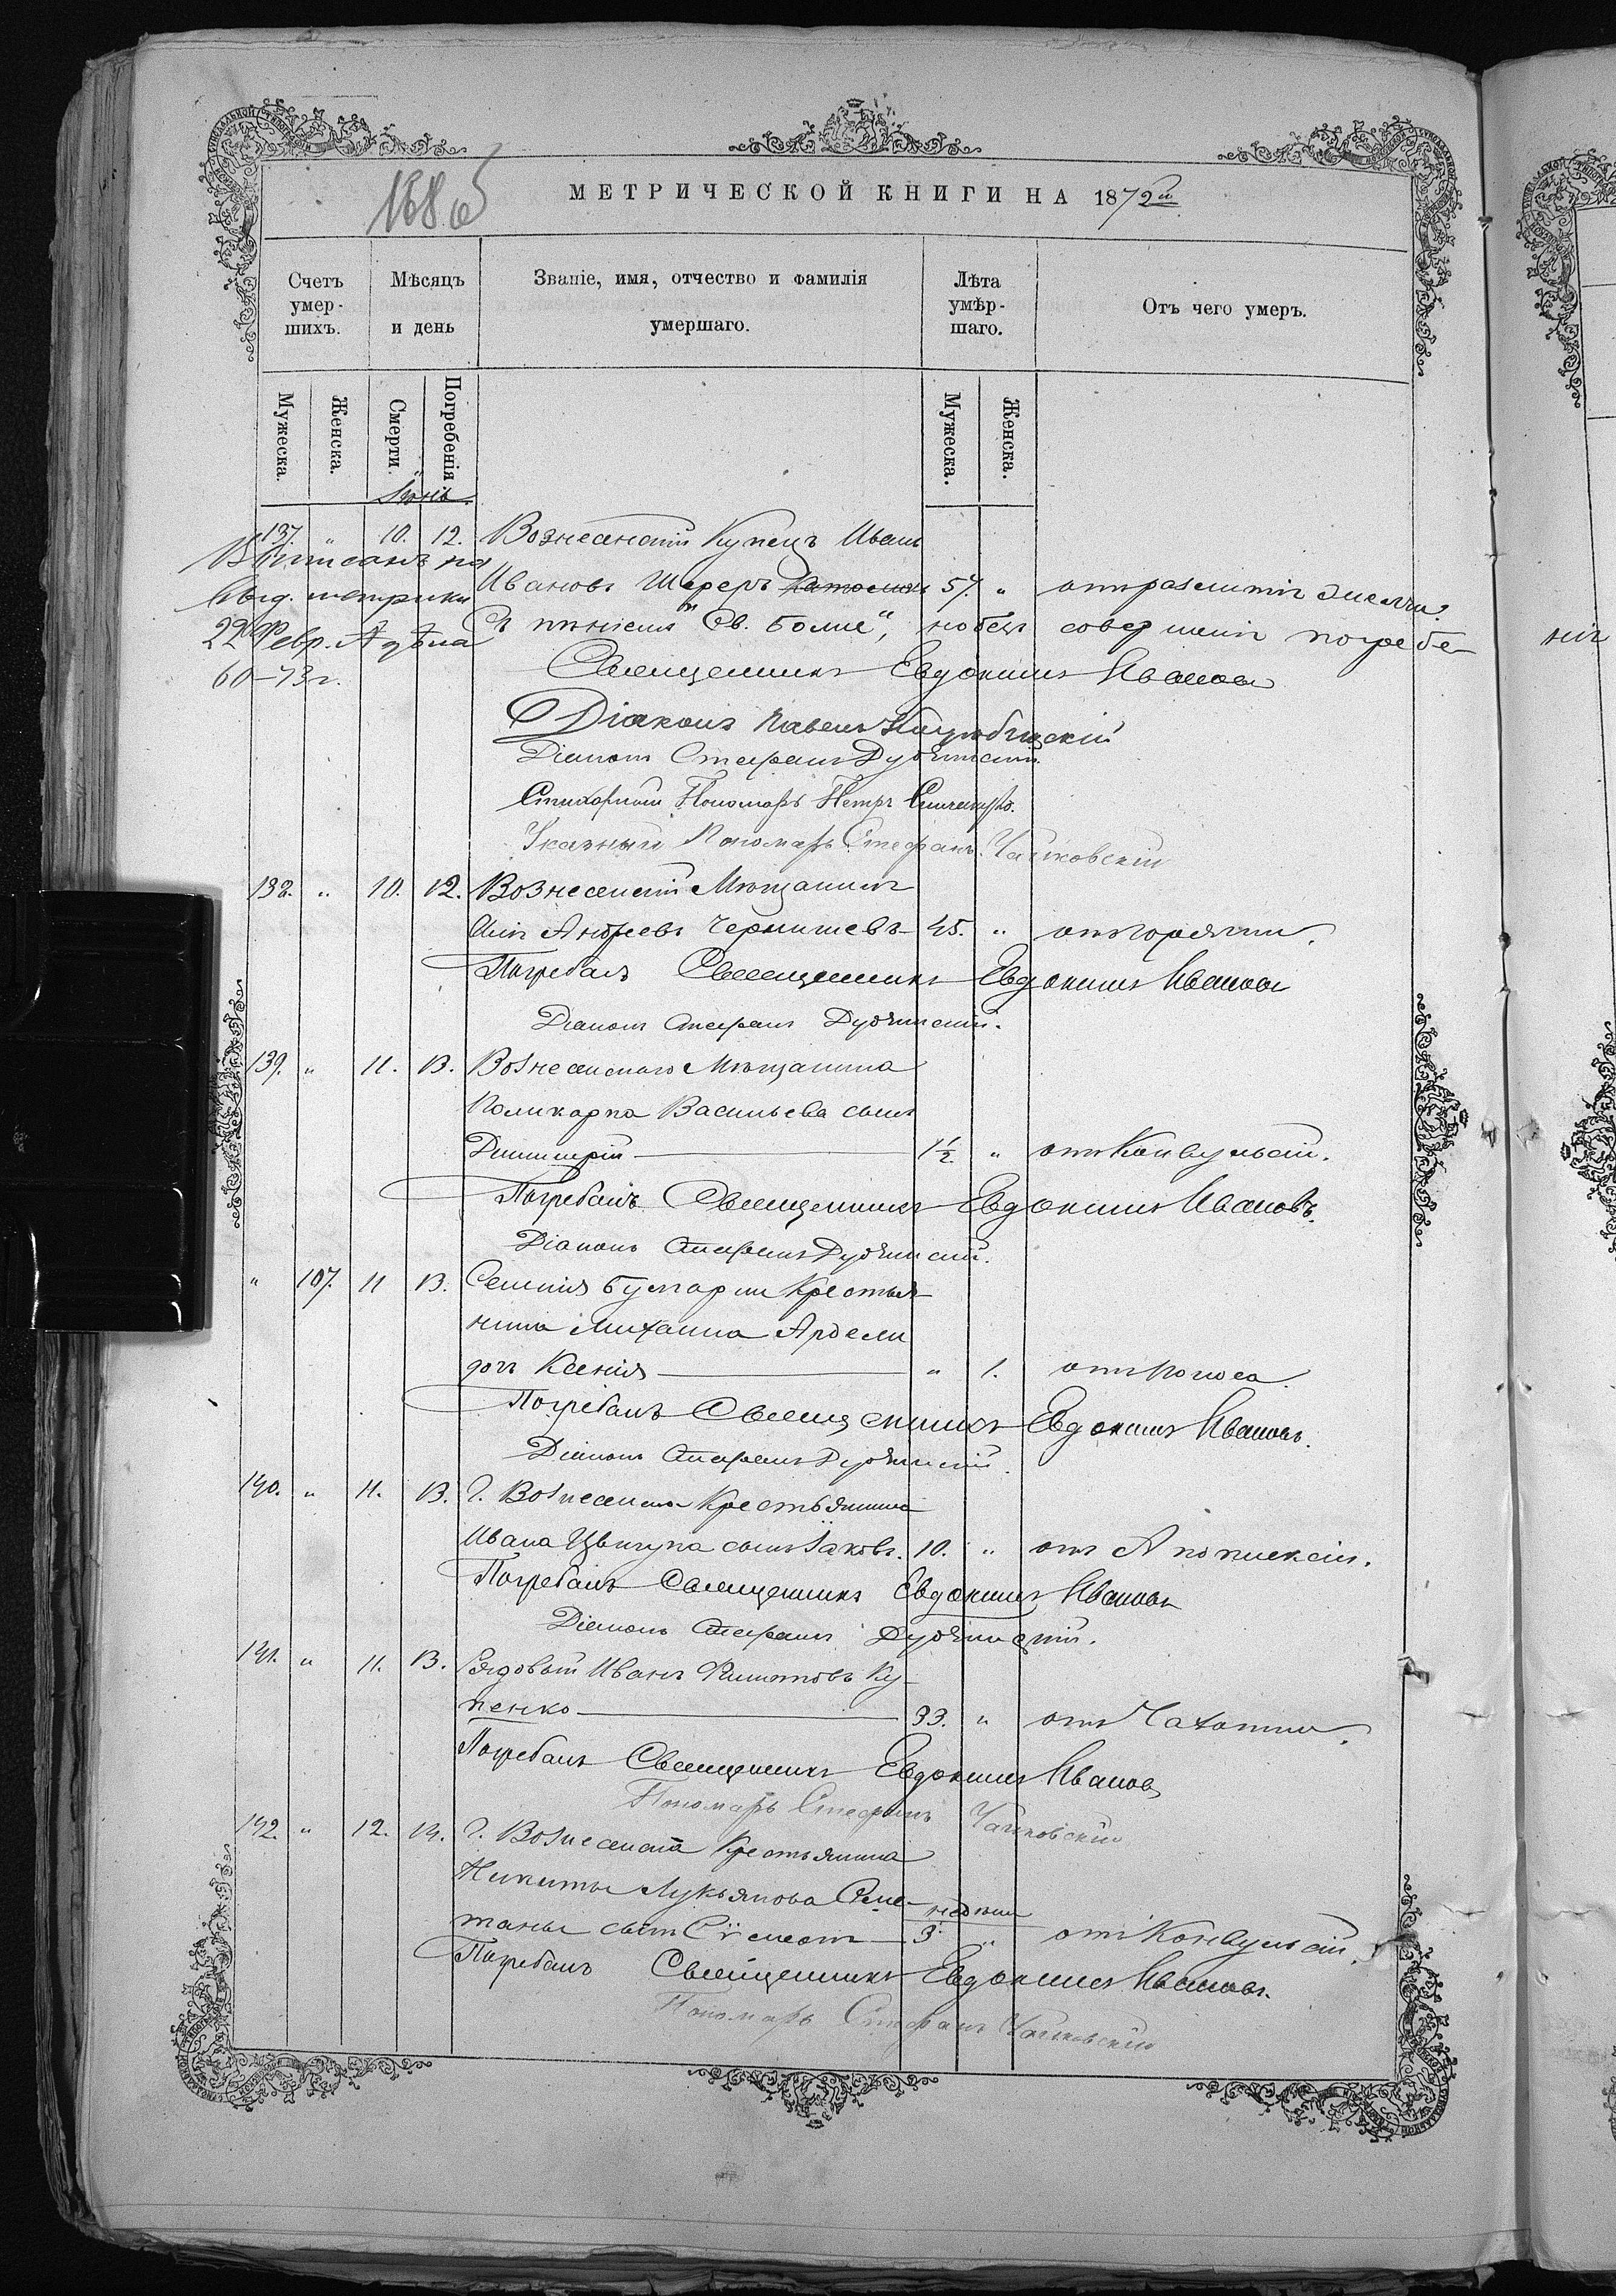 168 об
МЕТРИЧЕСКОЙ КНИГИ НА 1872й
Счетъ умер-шихъ.
Мѣсяцъ и день
Званіе, имя, отчество и фамилія умершаго.
Лѣта умѣр-шаго.
Отъ чего умеръ.
Мужеска.
Женска.
Смерти.
Погребенія
Мужеска.
Женска.
Іюнь
137. " 10. 12. Вознесенскій Купецъ Иванъ
Ивановъ Шереръ католикъ 57. " отъ разлитія желчи.
Выписанъ на
выд. метрики
22 Февр. Адѣла
60-73 г.
Съ пѣніемъ "Св. Боже", но безъ совершенія погребе-
нія
Священникъ Евдокимъ Ивановъ
Діаконъ Павелъ
Діаконъ Стефанъ
Стихарный Пономарь Петръ
Указный Пономарь Стефанъ Чайковскій
138. " 10. 12. Вознесенскій Мѣщанинъ
Андреевъ Чернышевъ 45. " отъ горячки.
Погребалъ Священникъ Евдокимъ Ивановъ
Діаконъ Стефанъ
139. " 11. 13. Вознесенскаго Мѣщанина
Поликарпа Васильева сынъ
Димитрій 1½ " отъ Конвульсій.
Погребалъ Священникъ Евдокимъ Ивановъ.
Діаконъ Стефанъ
" 107. 11 13. Селенія Булгарки Крестья-
нина Михаила Ардели
дочь Ксенія " 1. отъ поноса.
Погребалъ Священникъ Евдокимъ Ивановъ.
Діаконъ Стефанъ
140. " 11. 13. Г. Вознесенска Крестьянина
Ивана Цвигуна сынъ Іаковъ. 10. " отъ Апоплексіи.
Погребалъ Священникъ Евдокимъ Ивановъ
Діаконъ Стефанъ
141. " 11. 13. Рядовой Иванъ Филиповъ Ку-
пенко 33. " отъ Чахотки.
Погребалъ Священникъ Евдокимъ Ивановъ
Пономарь Стефанъ Чайковскій
142. " 12. 14. Г. Вознесенска Крестьянина
Никиты Лукьянова Сме-
таны сынъ 3. недѣли " отъ Конвульсій.
Погребалъ Священникъ Евдокимъ Ивановъ.
Пономарь Стефанъ Чайковскій